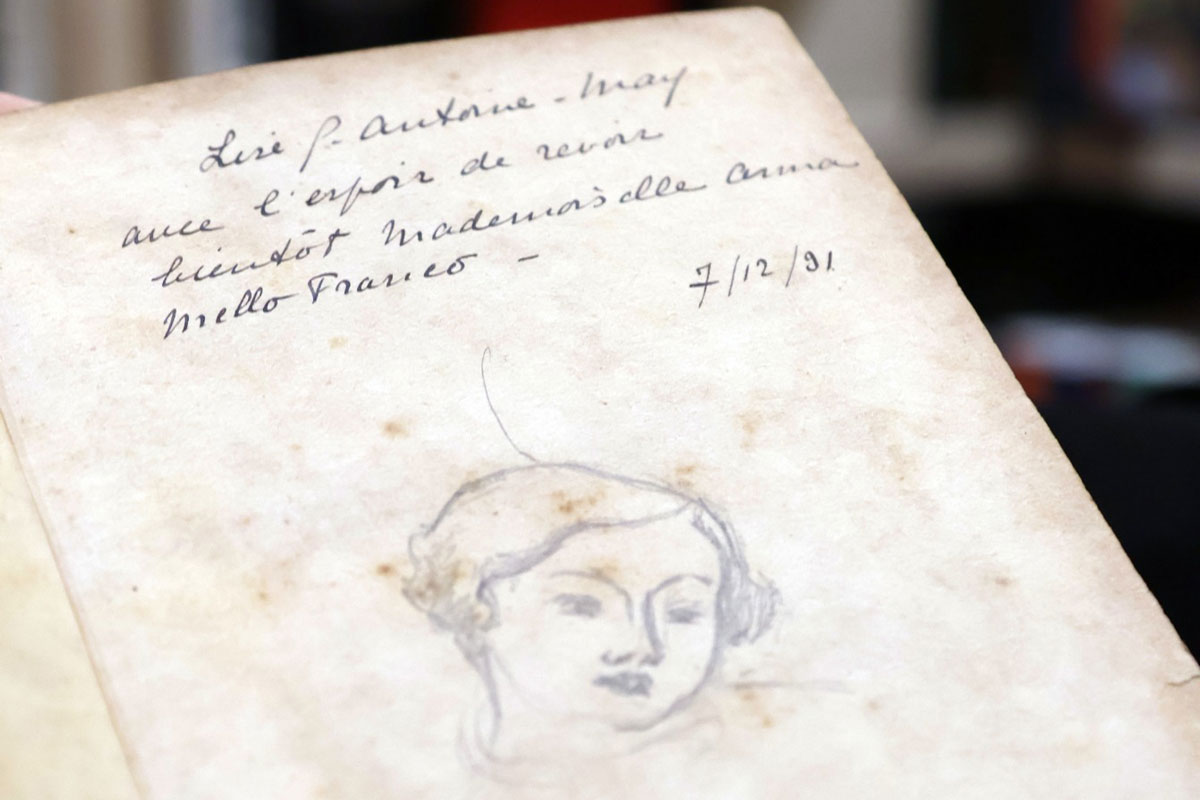 Lise J. Antoine - May
avec l'espoir de revoir
bientôt Mademoiselle Anna
Mello Franco -
7/12/31